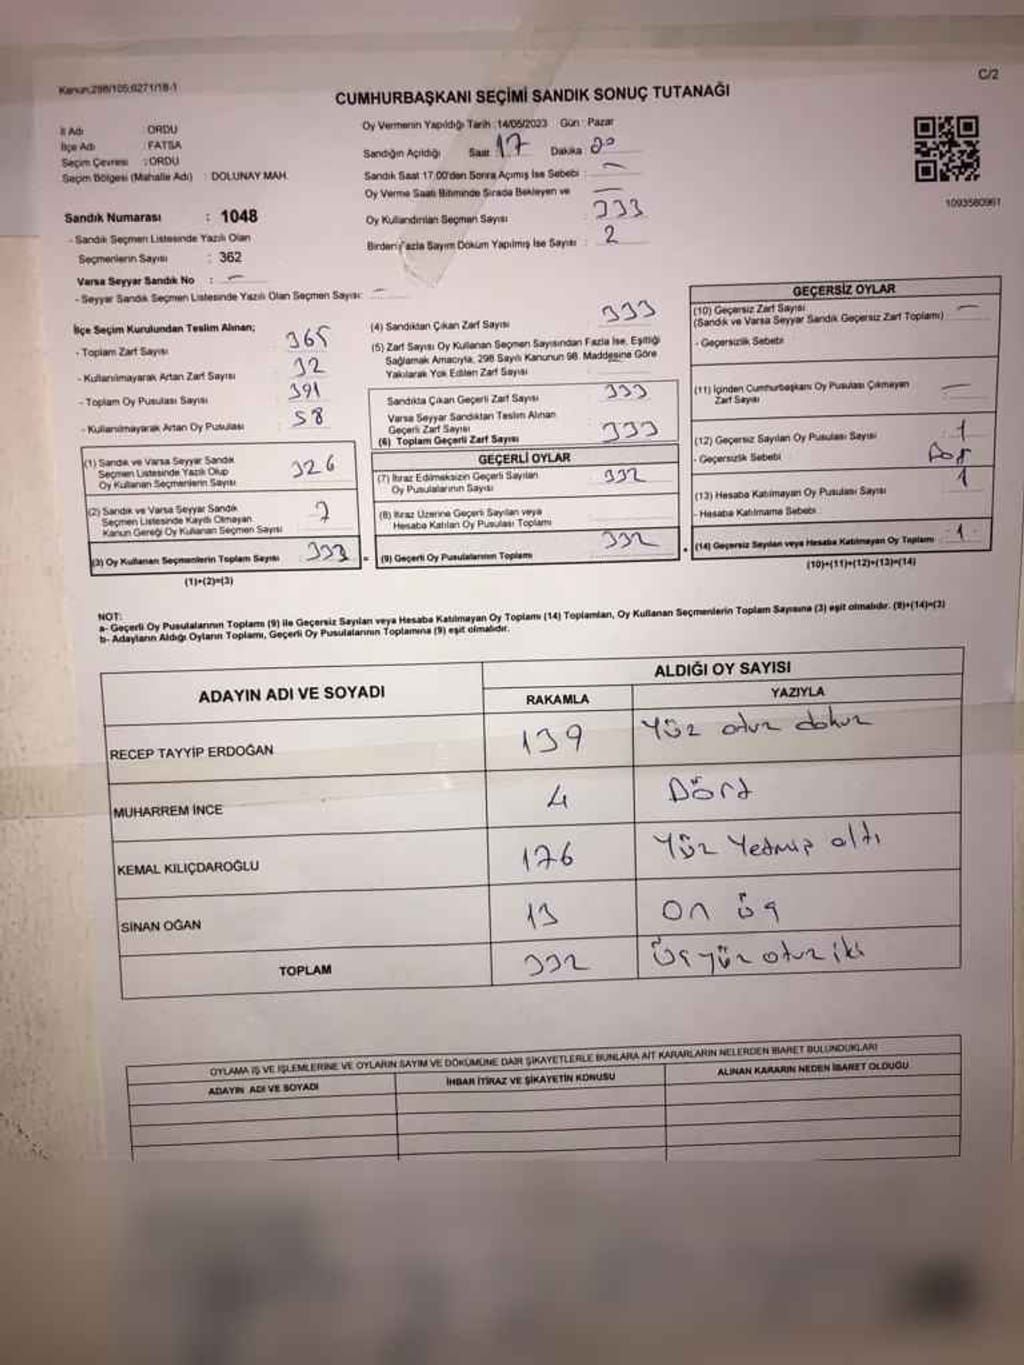 Kanun:298/105;6271/18-1
C/2
CUMHURBAŞKANI SEÇİMİ SANDIK SONUÇ TUTANAĞI
İl Adı : ORDU
İlçe Adı : FATSA
Seçim Çevresi : ORDU
Seçim Bölgesi (Mahalle Adı) : DOLUNAY MAH.
Sandık Numarası : 1048
- Sandık Seçmen Listesinde Yazılı Olan
Seçmenlerin Sayısı : 362
Varsa Seyyar Sandık No : -
- Seyyar Sandık Seçmen Listesinde Yazılı Olan Seçmen Sayısı: -
Oy Vermenin Yapıldığı Tarih : 14/05/2023 Gün : Pazar
Sandığın Açıldığı Saat : 17 Dakika : 20
Sandık Saat 17:00'den Sonra Açımış İse Sebebi : -
Oy Verme Saati Bitiminde Sırada Bekleyen ve -
Oy Kullandırılan Seçmen Sayısı 333
Birden Fazla Sayım Döküm Yapılmış İse Sayısı : 2
1093580961
İlçe Seçim Kurulundan Teslim Alınan;
- Toplam Zarf Sayısı 365
- Kullanılmayarak Artan Zarf Sayısı 32
- Toplam Oy Pusulası Sayısı 391
- Kullanılmayarak Artan Oy Pusulası 58
(1) Sandık ve Varsa Seyyar Sandık
Seçmen Listesinde Yazılı Olup
Oy Kullanan Seçmenlerin Sayısı 326
(2) Sandık ve Varsa Seyyar Sandık
Seçmen Listesinde Kayıtlı Olmayan
Kanun Gereği Oy Kullanan Seçmen Sayısı 7
(3) Oy Kullanan Seçmenlerin Toplam Sayısı 333 =
(1)+(2)=(3)
(4) Sandıktan Çıkan Zarf Sayısı 333
(5) Zarf Sayısı Oy Kullanan Seçmen Sayısından Fazla İse, Eşitliği
Sağlamak Amacıyla, 298 Sayılı Kanunun 98. Maddesine Göre
Yakılarak Yok Edilen Zarf Sayısı
Sandıkta Çıkan Geçerli Zarf Sayısı 333
Varsa Seyyar Sandıktan Teslim Alınan
Geçerli Zarf Sayısı
(6) Toplam Geçerli Zarf Sayısı 333
GEÇERLİ OYLAR
(7) İtiraz Edilmeksizin Geçerli Sayılan
Oy Pusulalarının Sayısı 332
(8) İtiraz Üzerine Geçerli Sayılan veya
Hesaba Katılan Oy Pusulası Toplamı
(9) Geçerli Oy Pusulalarının Toplamı 332 +
GEÇERSİZ OYLAR
(10) Geçersiz Zarf Sayısı
(Sandık ve Varsa Seyyar Sandık Geçersiz Zarf Toplamı) : -
- Geçersizlik Sebebi
(11) İçinden Cumhurbaşkanı Oy Pusulası Çıkmayan
Zarf Sayısı -
(12) Geçersiz Sayılan Oy Pusulası Sayısı 1
- Geçersizlik Sebebi
(13) Hesaba Katılmayan Oy Pusulası Sayısı 1
- Hesaba Katılmama Sebebi :
(14) Geçersiz Sayılan veya Hesaba Katılmayan Oy Toplamı : 1
(10)+(11)+(12)+(13)=(14)
NOT:
a- Geçerli Oy Pusulalarının Toplamı (9) ile Geçersiz Sayılan veya Hesaba Katılmayan Oy Toplamı (14) Toplamları, Oy Kullanan Seçmenlerin Toplam Sayısına (3) eşit olmalıdır. (9)+(14)=(3)
b- Adayların Aldığı Oyların Toplamı, Geçerli Oy Pusulalarının Toplamına (9) eşit olmalıdır.
ADAYIN ADI VE SOYADI
ALDIĞI OY SAYISI
RAKAMLA YAZIYLA
RECEP TAYYİP ERDOĞAN 139 Yüz otuz dokuz
MUHARREM İNCE 4 Dört
KEMAL KILIÇDAROĞLU 176 Yüz Yetmiş altı
SİNAN OĞAN 13 On üç
TOPLAM 332 Üç yüz otuz iki
OYLAMA İŞ VE İŞLEMLERİNE VE OYLARIN SAYIM VE DÖKÜMÜNE DAİR ŞİKAYETLERLE BUNLARA AİT KARARLARIN NELERDEN İBARET BULUNDUKLARI
ADAYIN ADI VE SOYADI İHBAR İTİRAZ VE ŞİKAYETİN KONUSU ALINAN KARARIN NEDEN İBARET OLDUĞU